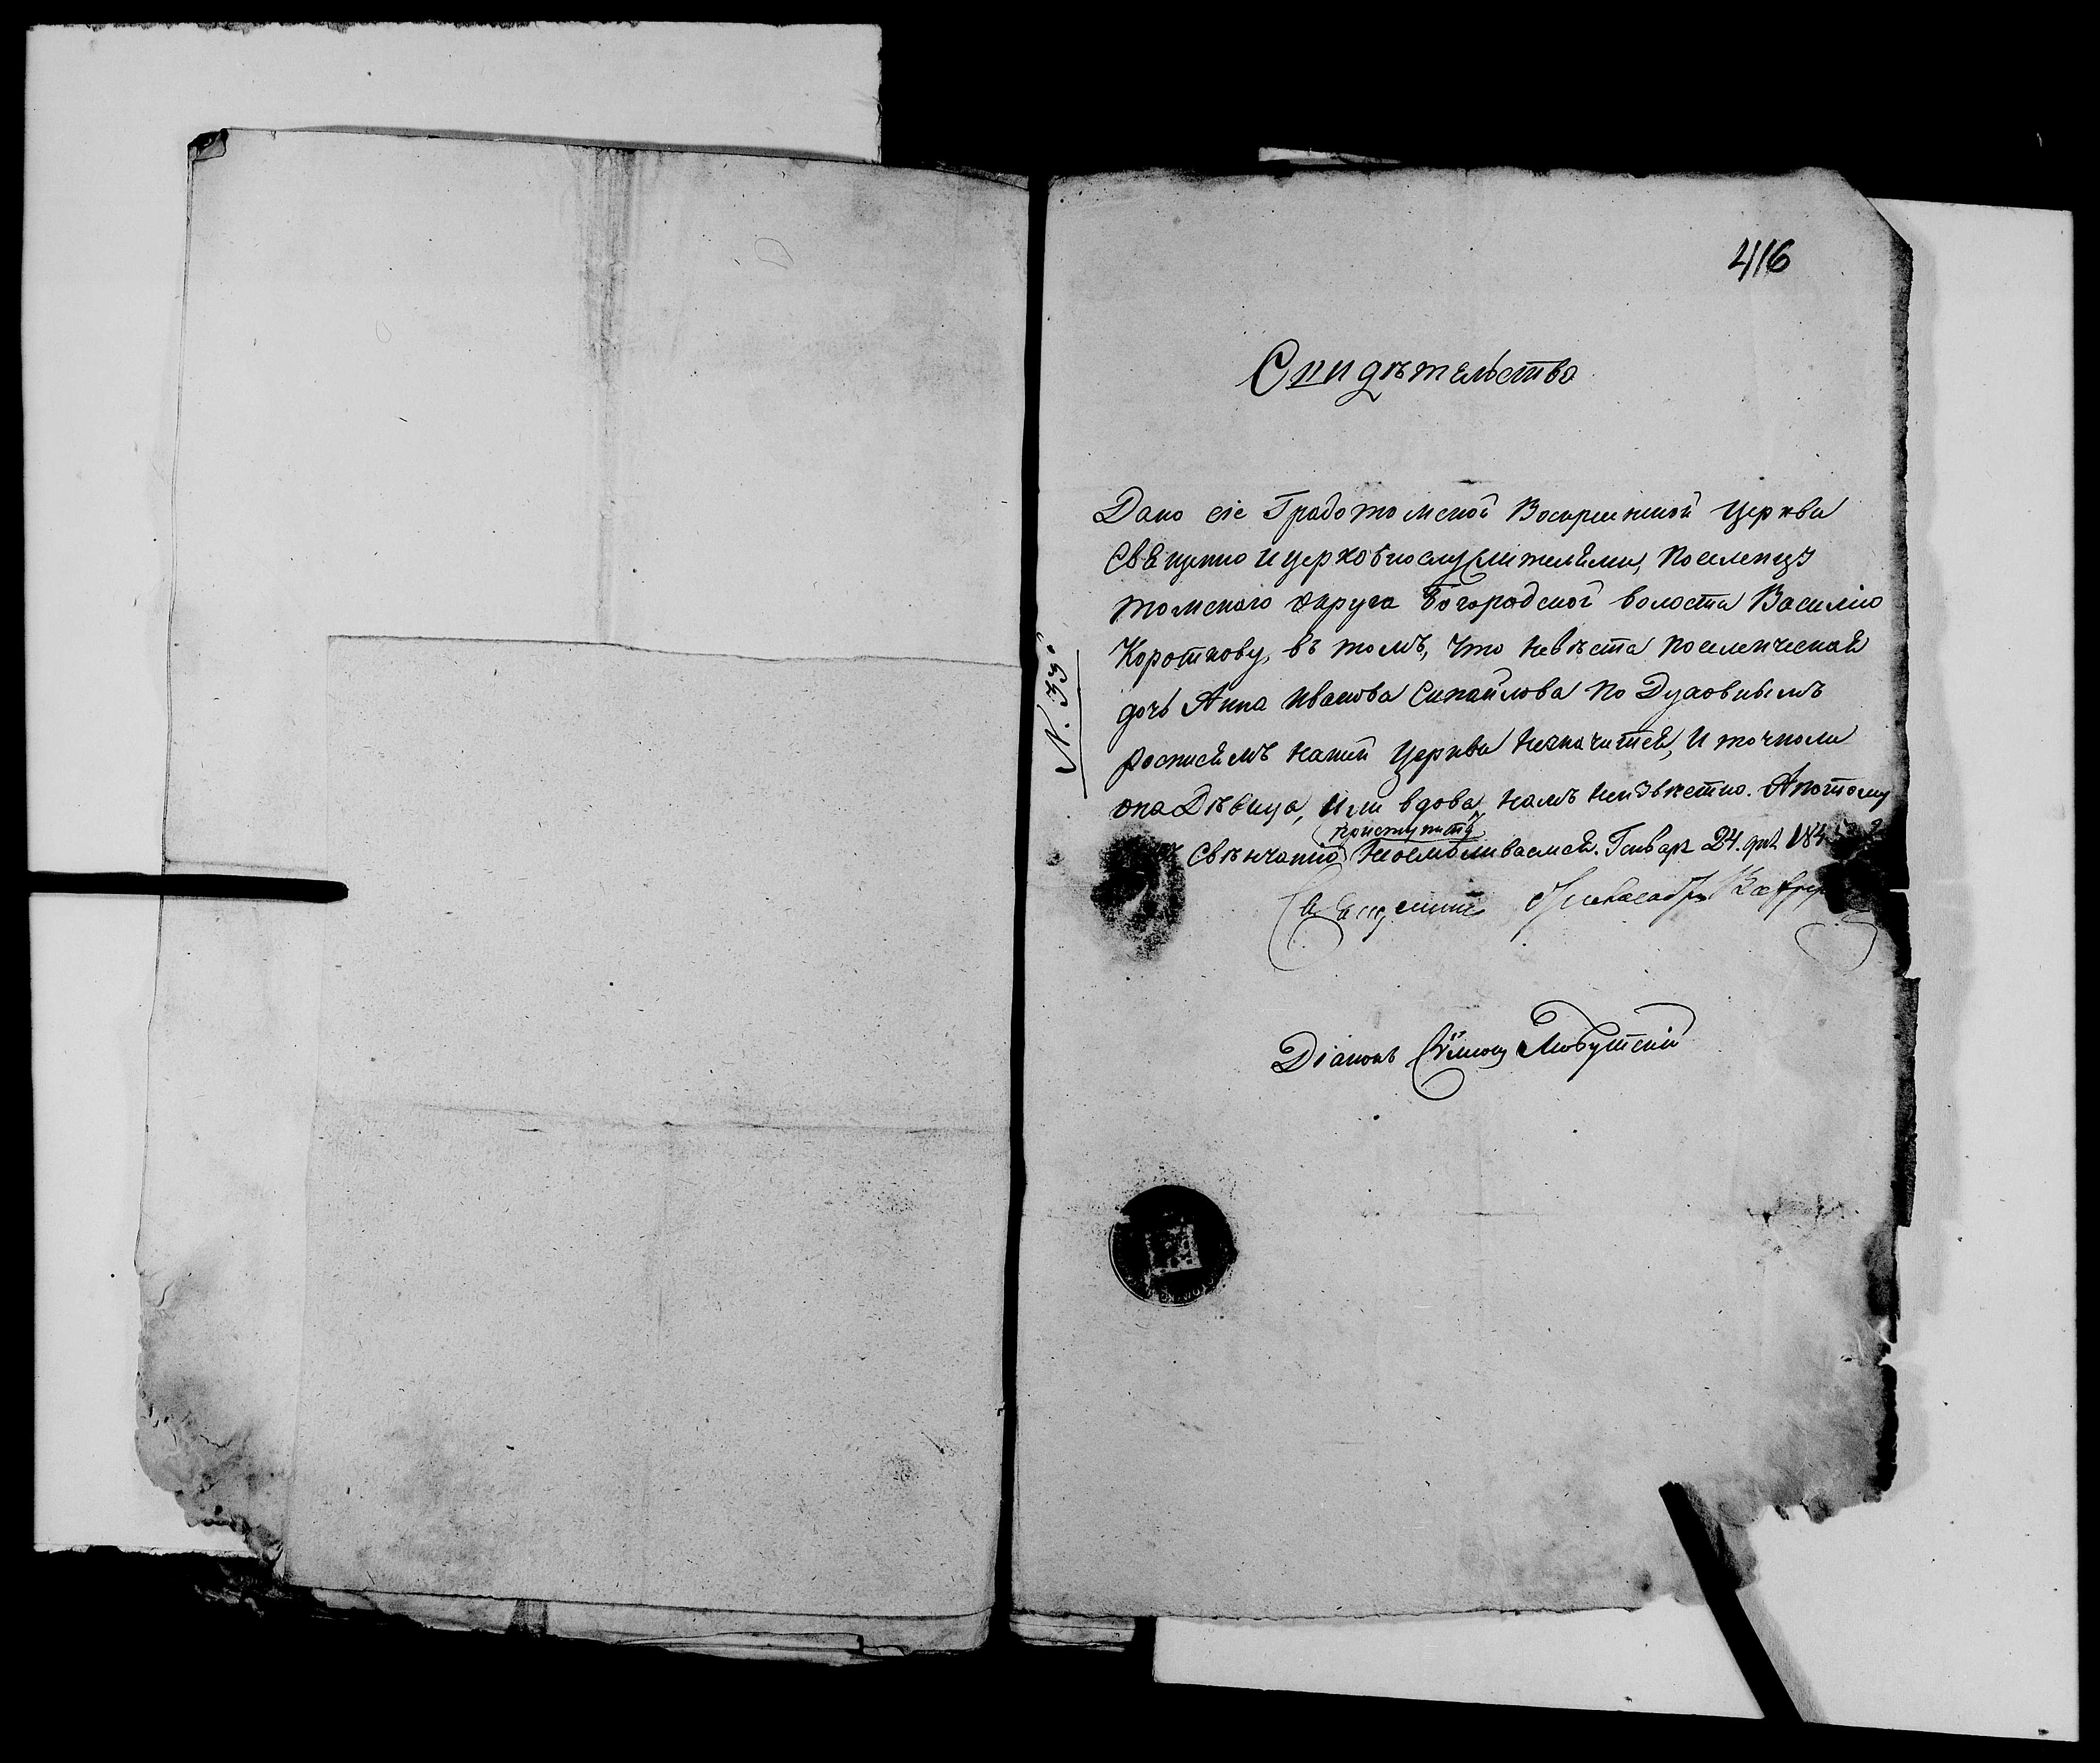 416
Свидѣтельство
Дано сіе Градотомской Воскресенской Церкви
Священно и церковнослужителями, поселенцу
томскаго округа Богородской волости Василію
Короткову, въ томъ, что невѣста поселенческая
дочь Анна Иванова по Духовнымъ
росписямъ нашей Церкви незначится, и точноли
она Дѣвица, или вдова намъ неизвѣстно. Апотому
приступить
Свѣнчанію неосмѣливаемся. Генваря 24. дня 184
Священникъ
Діаконъ Сѵмеонъ Любутскій
N. 33.